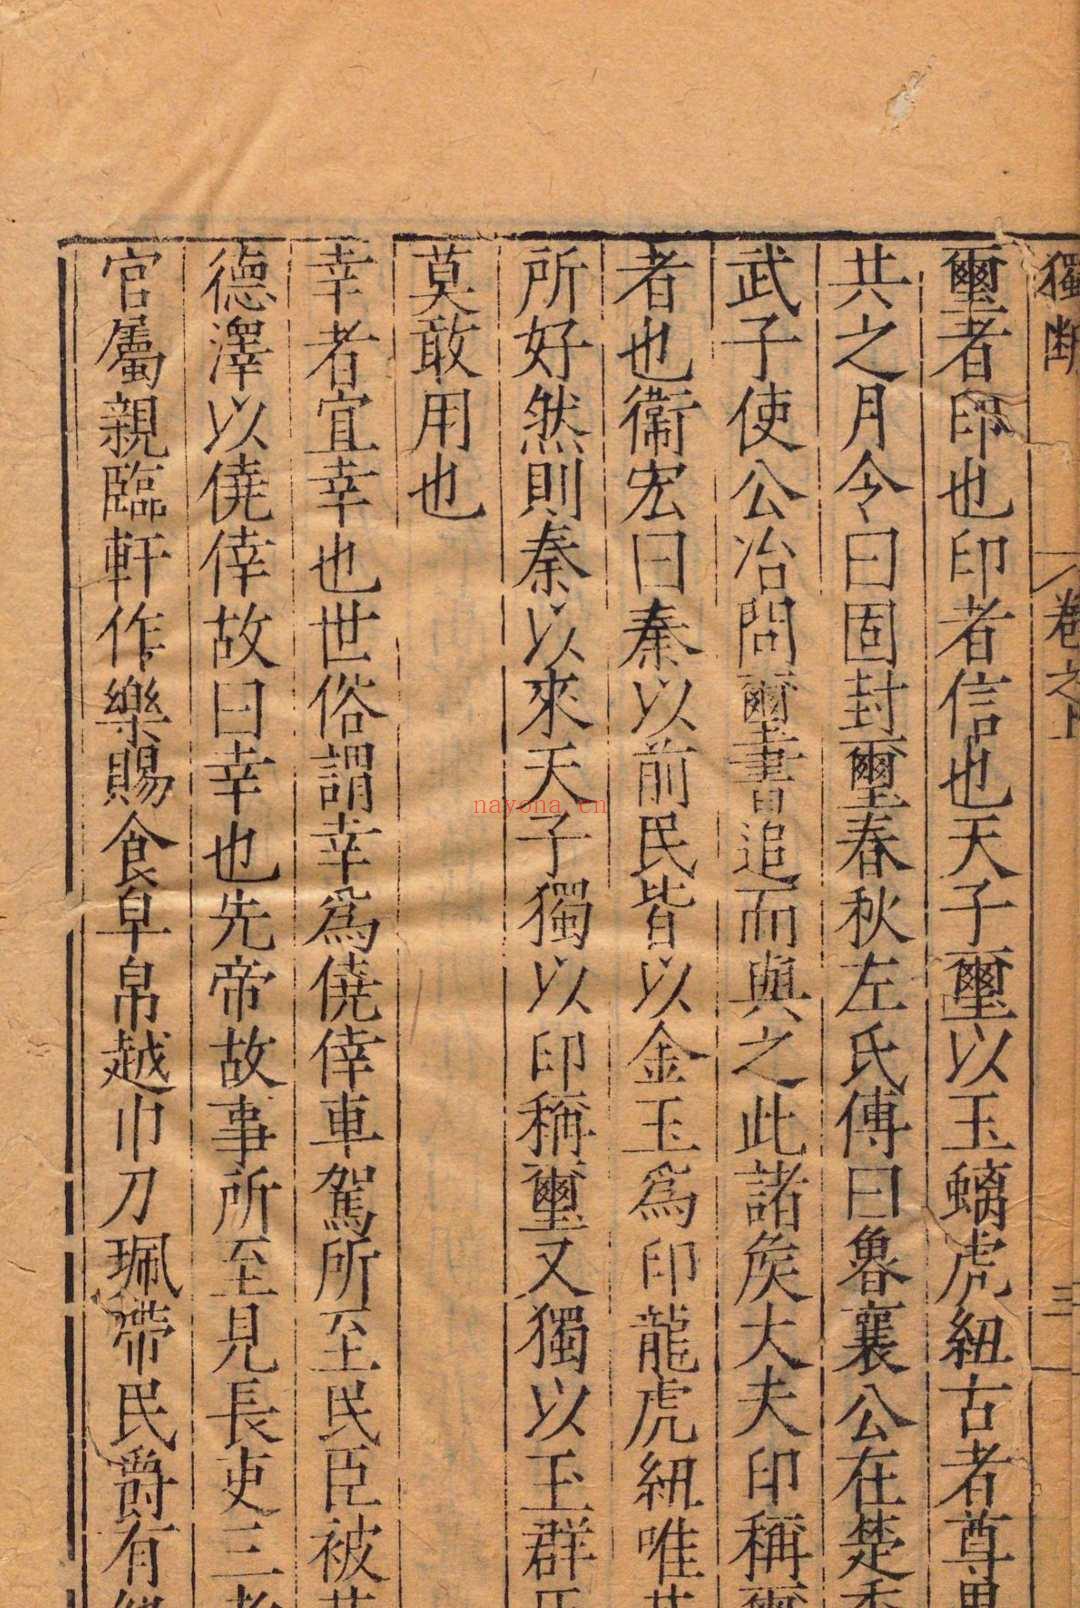 獨斷 卷之上 三
璽者印也印者信也天子璽以玉螭虎紐古者尊
共之月令曰固封璽春秋左氏傳曰魯襄公在楚
武子使公冶問璽書追而與之此諸矦大夫印稱
者也衞宏曰秦以前民皆以金玉爲印龍虎紐唯
所好然則秦以來天子獨以印稱璽又獨以玉群
莫敢用也
幸者宜幸也世俗謂幸爲僥倖車駕所至民臣被
德澤以僥倖故曰幸也先帝故事所至見長吏三
官屬親臨軒作樂賜食皁帛越巾刀珮帶民爵有
nayona.cn